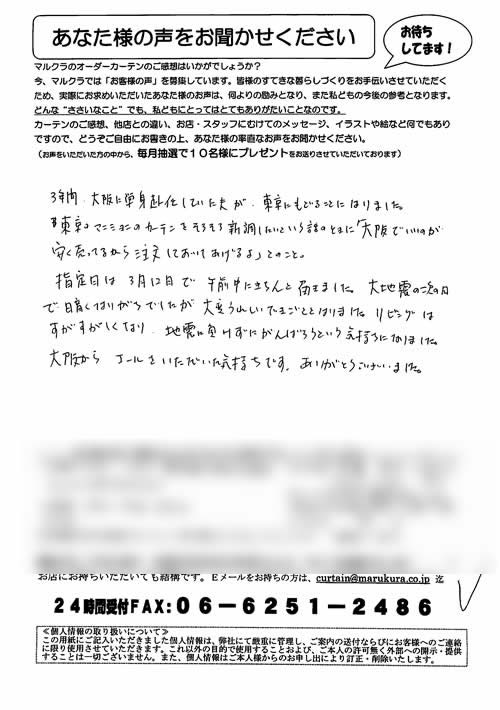 あなた様の声をお聞かせください
お待ち
してます!
マルクラのオーダーカーテンのご感想はいかがでしょうか?
今、マルクラでは「お客様の声」を募集しています。皆様のすてきな暮らしづくりをお手伝いさせていただく
ため、実際にお求めいただいたあなた様のお声は、何よりの励みとなり、また私どもの今後の参考となります。
どんな“ささいなこと”でも、私どもにとってはとてもありがたいことなのです。
カーテンのご感想、他店との違い、お店・スタッフにむけてのメッセージ、イラストや絵など何でもあり
ですので、どうぞご自由にお書きの上、あなた様の率直なお声をお聞かせください。
(お声をいただいた方の中から、毎月抽選で10名様にプレゼントをお送りさせていただいております)
3年間、大阪に単身赴任していた夫が、東京にもどることになりました。
東京のマンションのカーテンをそろそろ新調したいという話のときに「大阪でいいのが
安く売ってるから注文しておいてあげるよ」とのこと。
指定日は3月12日で午前中にきちんと届きました。大地震の次の日
で暗くなりがちでしたが大変うれしいできごととなりました。リビングは
すがすがしくなり、地震に負けずにがんばろうという気持ちになりました。
大阪から エールをいただいた気持ちです。ありがとうございました。
お店にお持ちいただいても結構です。Eメールをお持ちの方は、curtain@marukura.co.jp 迄
24時間受付FAX:06-6251-2486
≪個人情報の取り扱いについて≫
この用紙にご記入いただきました個人情報は、弊社にて厳重に管理し、ご案内の送付ならびにお客様へのご連絡
に限り使用させていただきます。これ以外の目的で使用することおよび、ご本人の許可無く外部への開示・提供
することは一切ございません。また、個人情報はご本人様からのお申し出により訂正・削除いたします。